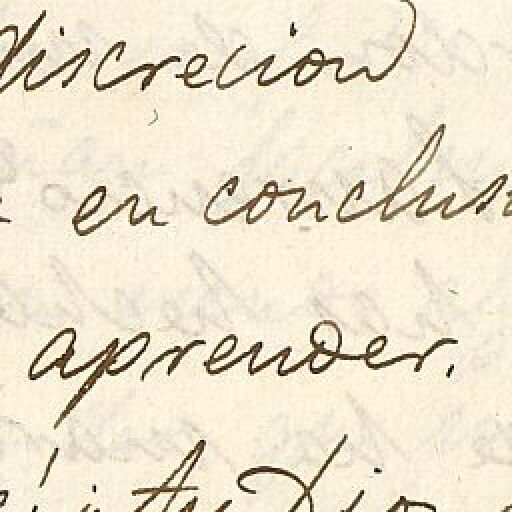 discrecion
en conclus
aprender.